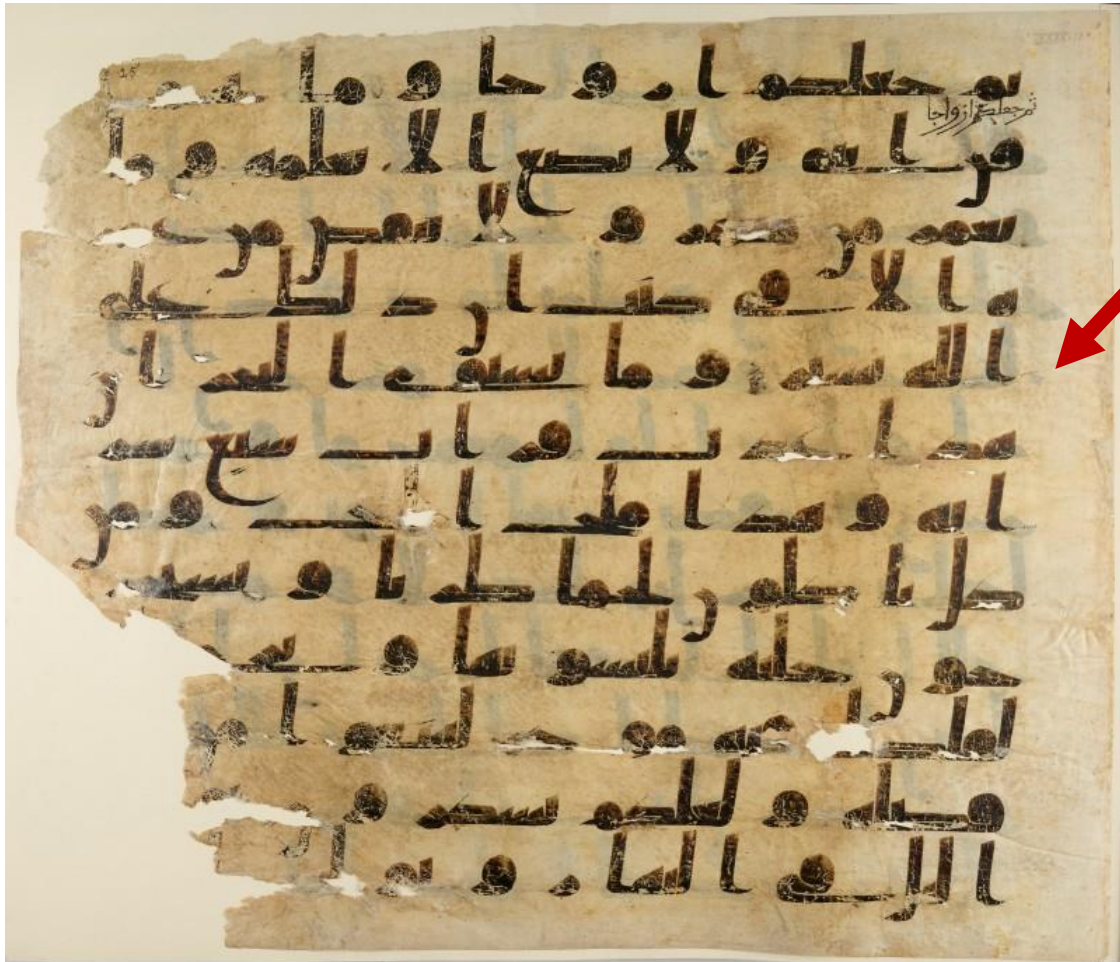 ثم جعلكم ازوجا وما تحمل
ثم جعلكم ازواجا
من انثى ولا تضع الا بعلمه وما
يعمر من معمر ولا ينقص من عمر
ه الا في كتب ان ذلك على
الله يسير وما يستوي البحران
هذا عذب فرات سيغ شر
ابه وهذا ملح اجاج ومن
كل تاكلون لحما طريا وتستخر
جون حلية تلبسونها وترى
الفلك فيه مواخر لتبتغوا من
فضله ولعلكم تشكرون
اليل في النهار ويولج